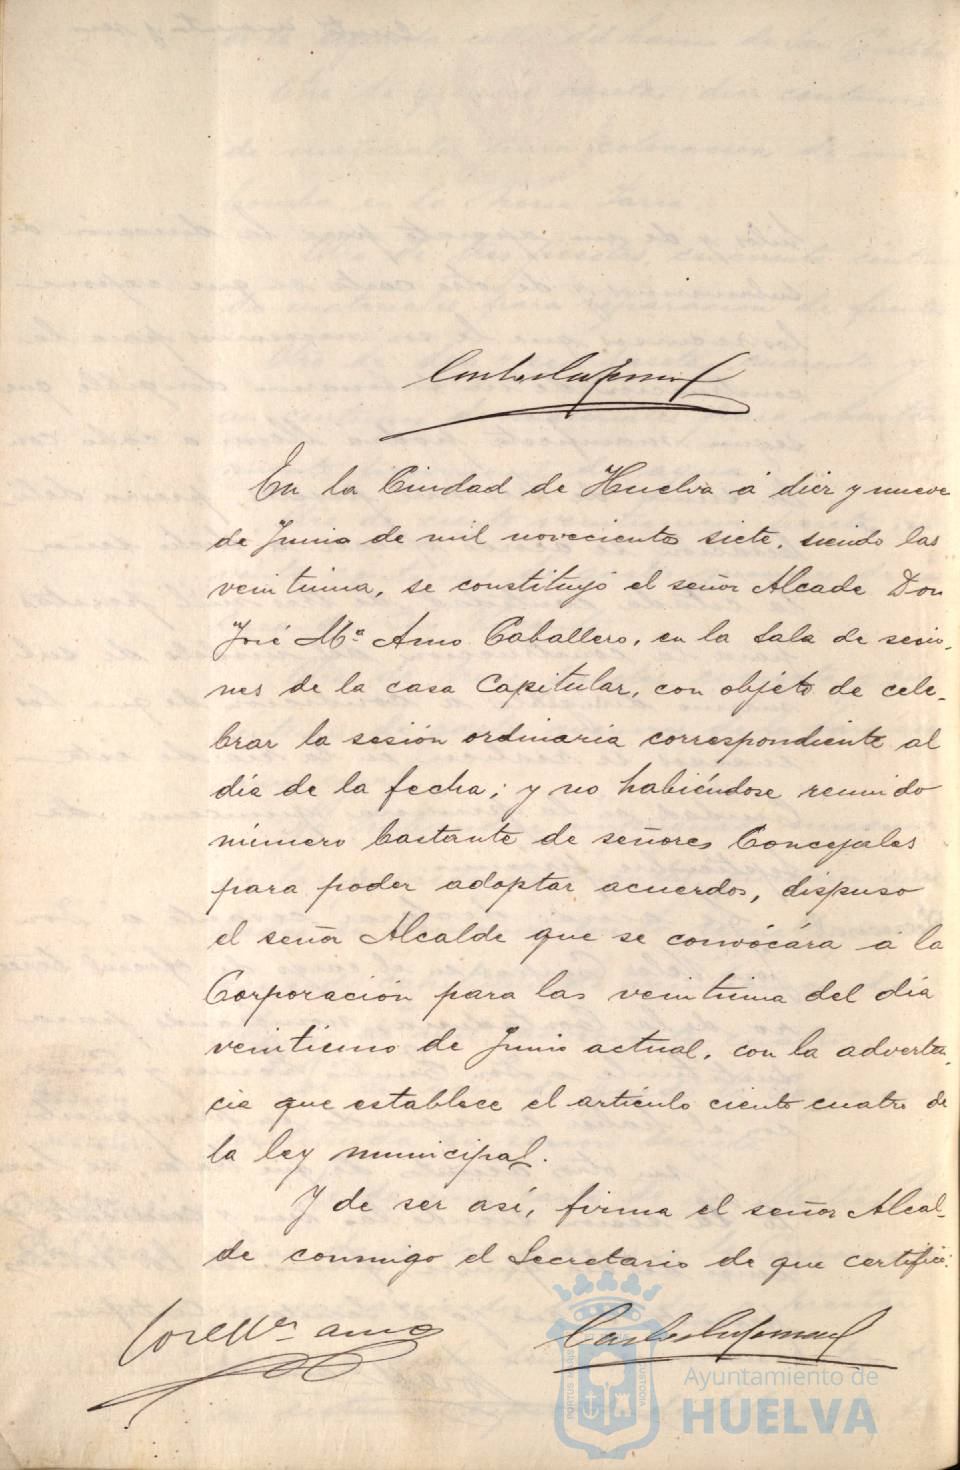 En la Ciudad de Huelva á diez y nueve
de Junio de mil novecientos siete, siendo las
veintiuna, se constituyó el señor Alcade Don
José Mª Amo Caballero, en la Sala de sesio-
nes de la casa Capitular, con objeto de cele-
brar la sesión ordinaria correspondiente al
día de la fecha; y no habiéndose reunido
número bastante de señores Concejales
para poder adoptar acuerdos, dispuso
el señor Alcalde que se convócára á la
Corporación para las veintiuna del día
veintiuno de Junio actual, con la adverten-
cia que establece el artículo ciento cuatro de
la ley municipal.
Y de ser así, firma el señor Alcal-
de conmigo el Secretario de que certifico.
José Mª Amo
Ayuntamiento de
HUELVA